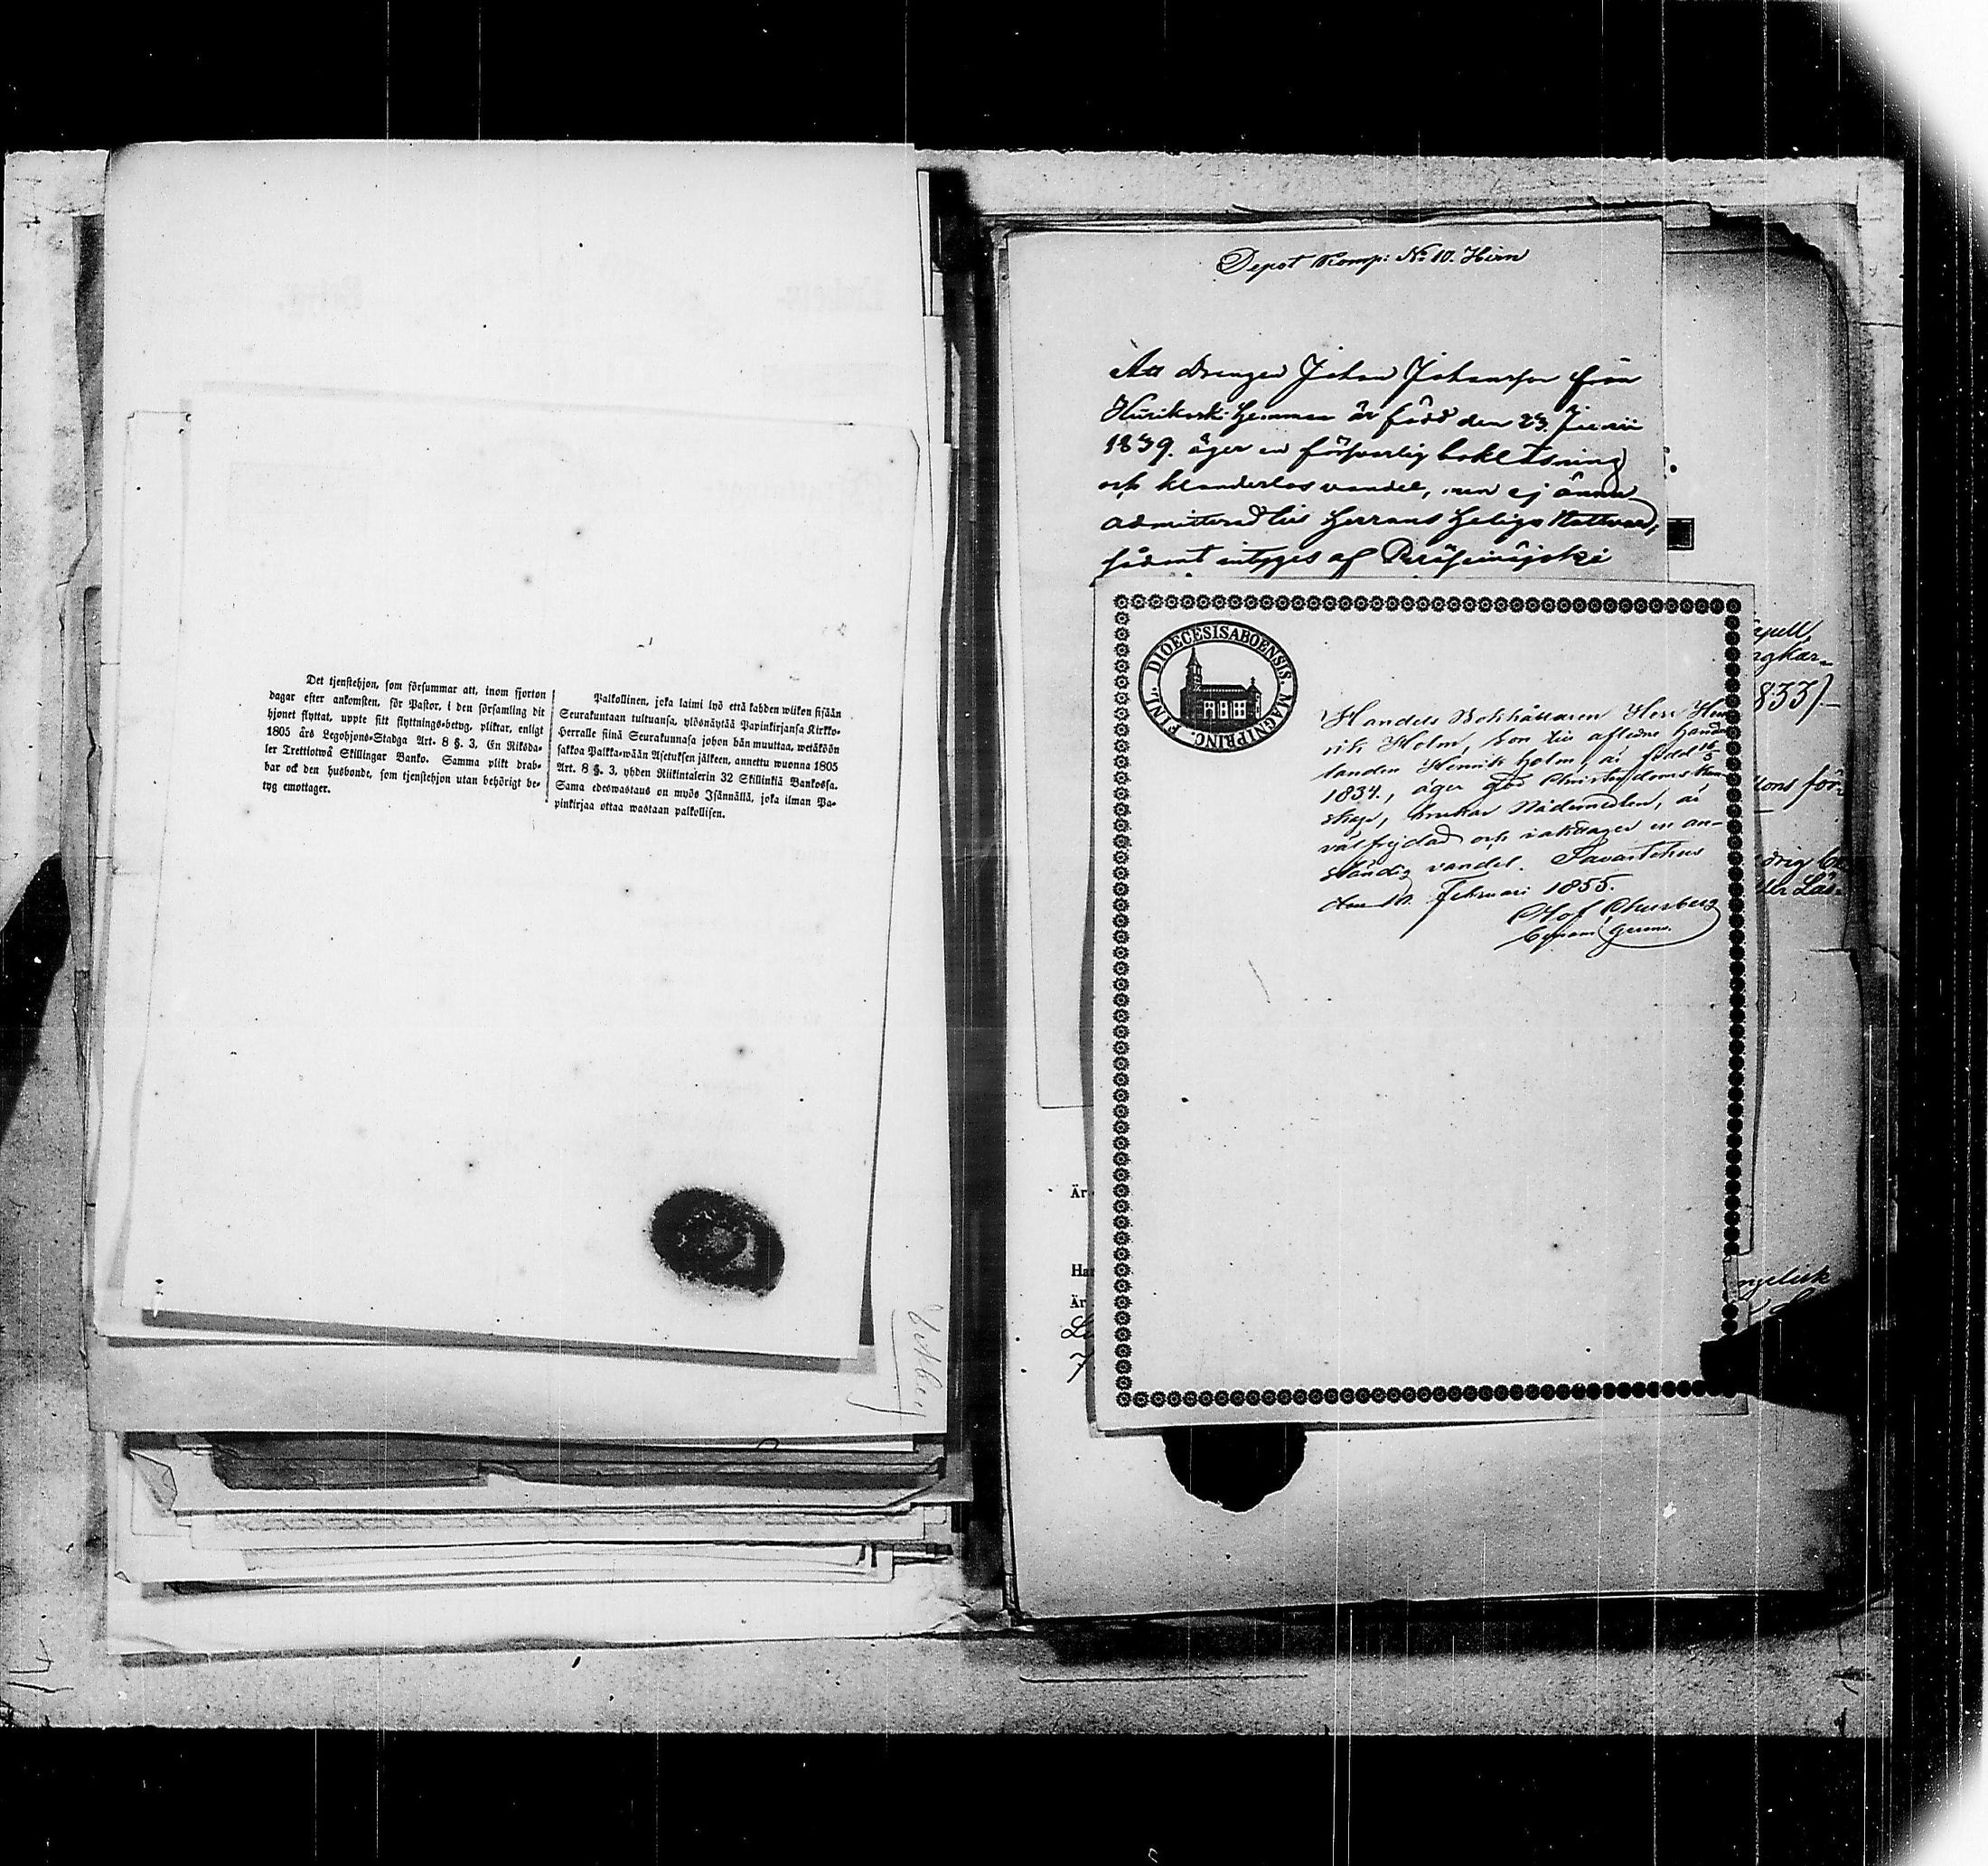 Det tjenstehjon, som försummar att, inom fjorton
dagar efter ankomsten, för Pastor, i den församling dit
hjonet flyttat, uppte sitt flyttnings-betyg, pliktar, enligt
1805 års Legohjons-Stadga Art. 8 §. 3, En Riksda-
ler Trettiotwå Skillingar Banko. Samma plikt drab-
bar ock den husbonde, som tjenstehjon utan behörigt be-
tyg emottager.
Palkollinen, joka laimi lyö että kahden wiikon sisään
Seurakuntaan tultuansa, ylösnäytää Papinkirjansa Kirkko-
Herralle siinä Seurakunnasa johon hän muuttaa, wetäköön
sakkoa Palkka-wään Asetuksen jälkeen, annettu wuonna 1805
Art. 8 §. 3, yhden Riikintalerin 32 Skillinkiä Bankossa.
Sama edeswastaus on myös Isännällä, joka ilman Pa-
pinkirjaa ottaa wastaan palkollisen.
Depot Komp: No 10. Hirn
Att Drengen Johan Johansson från
hemman är född den 23. Junii
1839. äger en försvarlig bokläsning
och klanderlös vandel, men ej ännu
admitterad till Herrans Heliga Nattvard,
sådant intygas af Peräseinäjoki
DIOECESIS ABOENSIS MAGNI PRINC. FINL.
Handels Bokhållaren Herr Hen
rik Holm, son till aflidne Handl
landen Henrik Holm, är född 16/5
1834., äger god Christendoms kun
skap, brukar Nådemedlen, är
välfrejdad och iakttager en an-
ständig vandel. Tavastehus
den 10. Februari 1855.
Olof Chursberg
Capell,
833).
sons för
ngelisk
Är
Han
Är